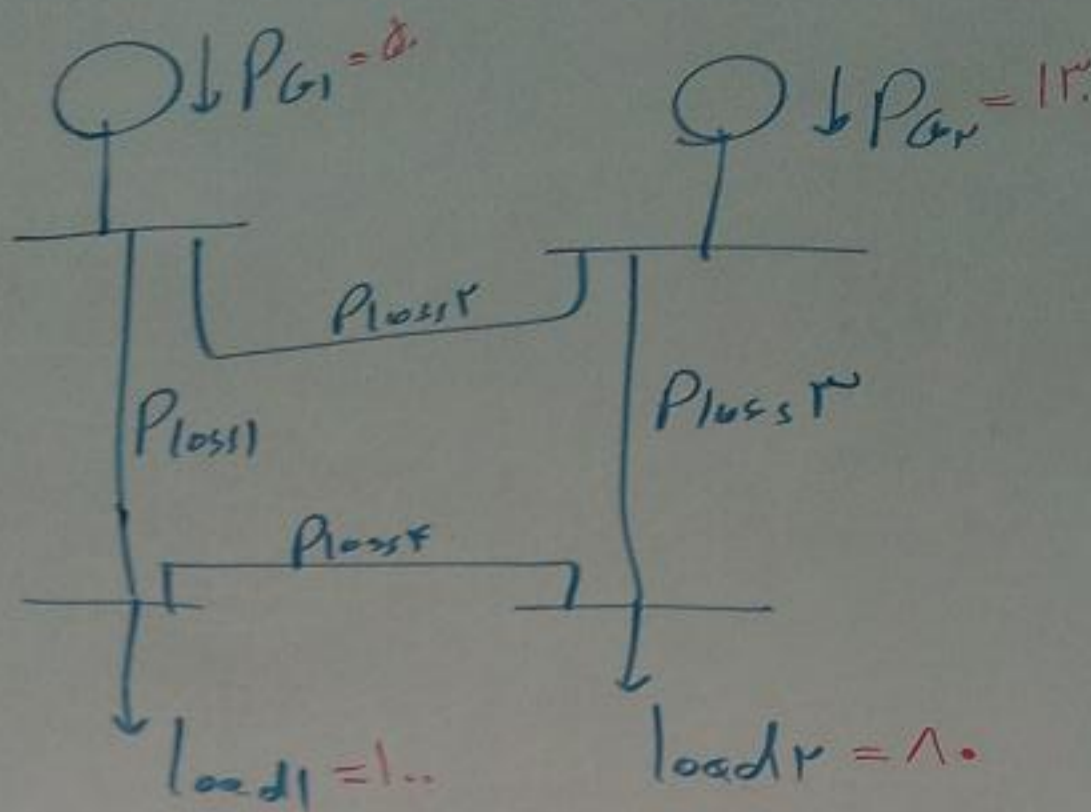 PG1 = ۵۰
PG۲ = ۱۳۰
Ploss۲
Ploss1
Ploss۳
Ploss۴
load1 = ۱۰۰
load۲ = ۸۰